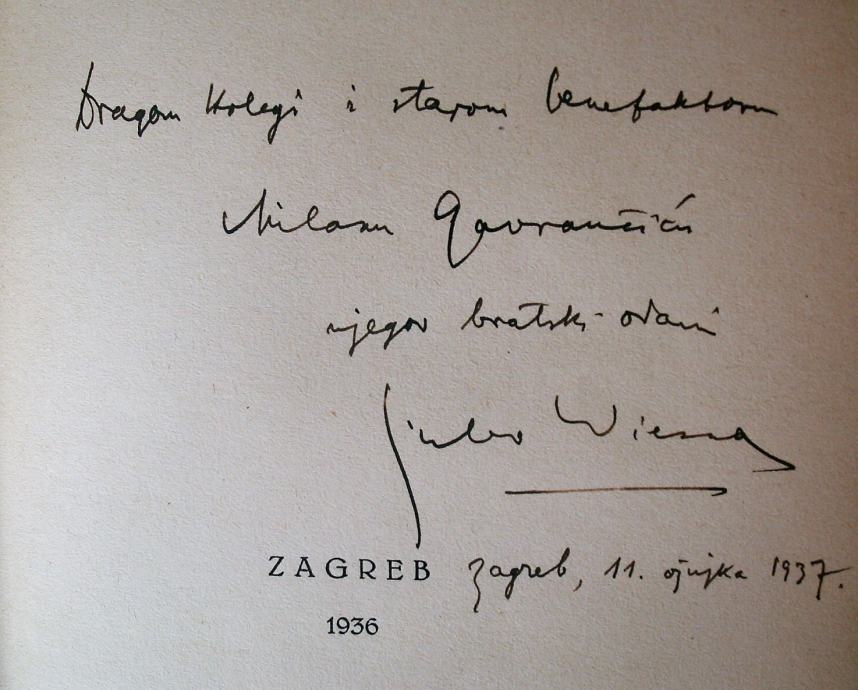 Dragom Kolegi i starom benefaktoru
Milanu Gavrančiću
njegov bratski odani
Ljubo Wiesner
ZAGREB Zagreb, 11. ožujka 1937.
1936